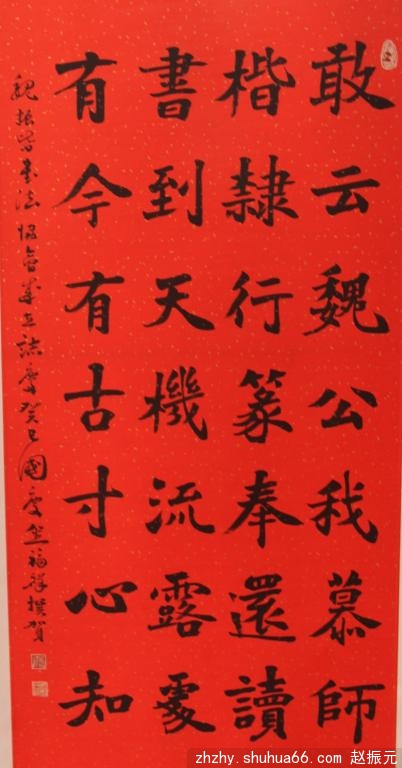 敢云魏公我慕師
楷隸行篆奉還讀
書到天機流露處
有今有古寸心知
魏振皆書法協會成立誌慶癸巳國慶 福祥撰賀
zhzhy.shuhua66.com 赵振元